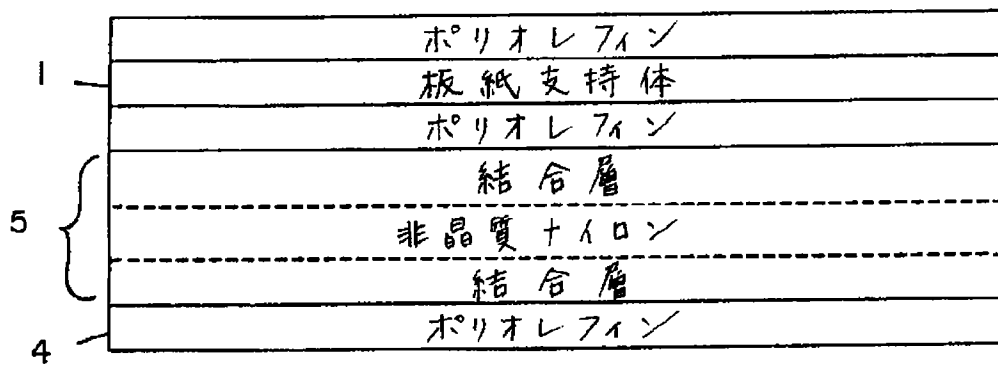 ポリオレフィン
1 板紙支持体
ポリオレフィン
結合層
5 非晶質ナイロン
結合層
4 ポリオレフィン